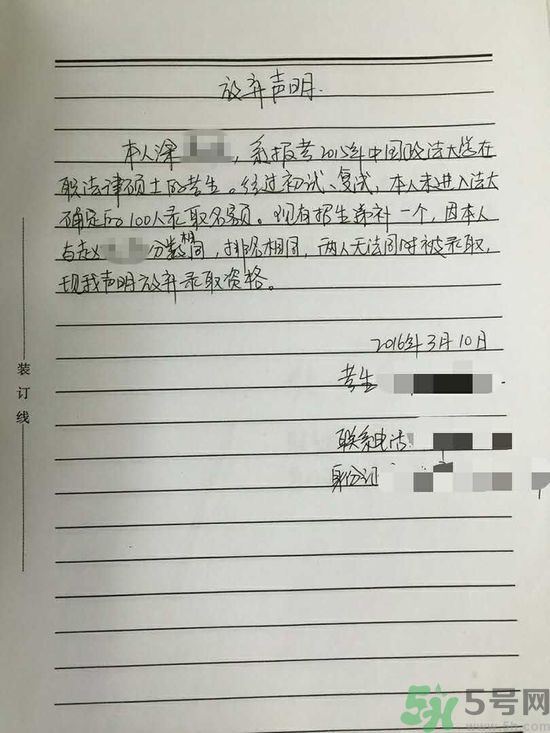 放弃声明.
本人涂 ，系报考2015年中国政法大学在
职法律硕士的考生。经过初试、复试，本人未进入法大
确定的100人录取名额。现有招生递补一个，因本人
与赵 分数相同，排名相同，两人无法同时被录取，
现我声明放弃录取资格。
2016年3月10日
考生
联系电话:
身份证
装订线
5号网
www.5h.com